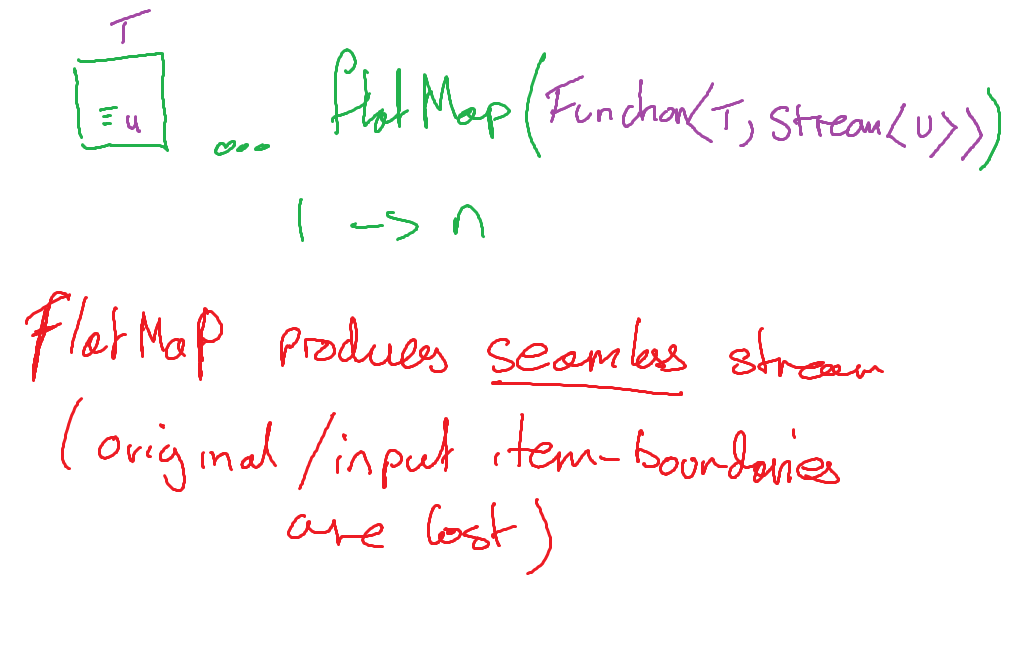 T
u
... flatMap(Function<T, Stream<U>>)
1 -> n
FlatMap produces seamless stream
(original/input item-boundaries
are lost)